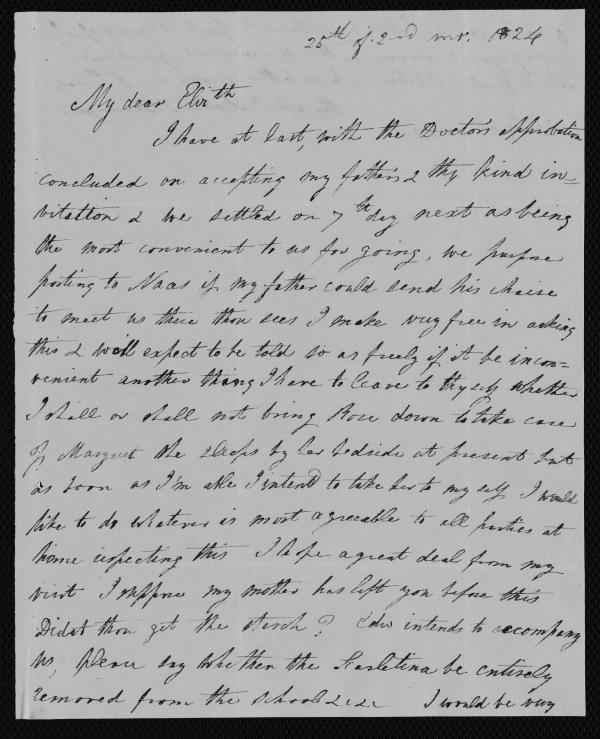 25th of 2nd mo. 1824
My dear Elizth
I have at last, with the Doctors approbation
concluded on accepting my fathers & thy kind in=
vitation & we settled on 7th day next as being
the most convenient to us for going, we purpose
posting to Naas if my father could send his chaise
to meet us there thou sees I make very free in asking
this & will expect to be told so as freely if it be incon=
venient another thing I have to leave to thyself whether
I shall or shall not bring Rose down to take care
of Margaret she sleeps by her bedside at present but
as soon as I'm able I intend to take her to my self I would
like to do whatever is most agreeable to all parties at
home respecting this I hope a great deal from my
visit I suppose my mother has left you before this
Didst thou get the starch? Edw intends to accompany
us, please say whether the Scarletina be entirely
removed from the school &c &c I would be very